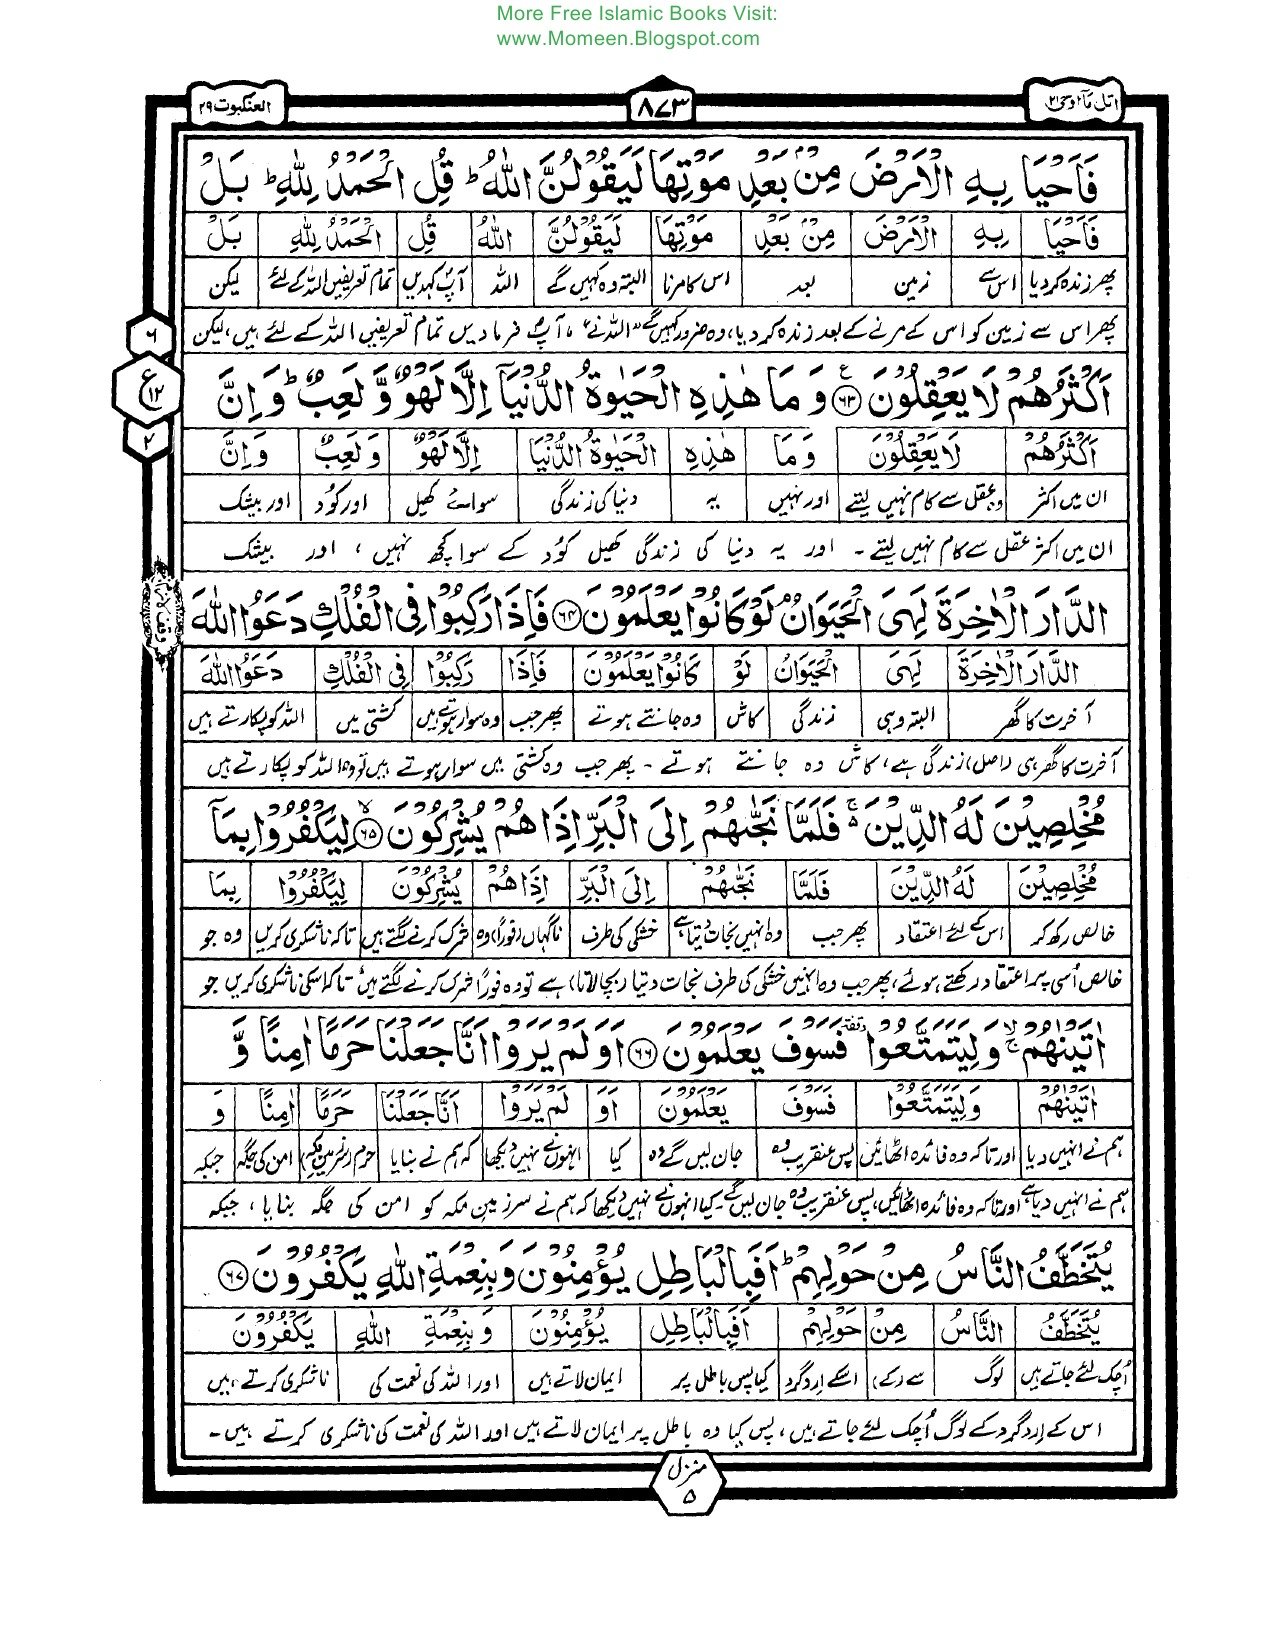 More Free Islamic Books Visit:
www.Momeen.Blogspot.com
اتل مآ اوحی ۲۱
۸۷۳
العنکبوت ۲۹
فَاَحْیَا بِهِ الْاَرْضَ مِنْۢ بَعْدِ مَوْتِهَا لَیَقُوْلُنَّ اللّٰهُ ؕ قُلِ الْحَمْدُ لِلّٰهِ ؕ بَلْ
فَاَحْیَا بِهِ الْاَرْضَ مِنْۢ بَعْدِ مَوْتِهَا لَیَقُوْلُنَّ اللّٰهُ قُلِ الْحَمْدُ لِلّٰهِ بَلْ
پھر زندہ کر دیا اس سے زمین بعد اس کا مرنا البتہ وہ کہیں گے اللہ آپؐ کہدیں تمام تعریفیں اللہ کے لئے لیکن
پھر اس سے زمین کو اس کے مرنے کے بعد زندہ کر دیا، وہ ضرور کہیں گے "اللہ نے" ، آپؐ فرما دیں تمام تعریفیں اللہ کے لئے ہیں، لیکن
۶
ع ۱۲
۲
اَكْثَرُهُمْ لَا یَعْقِلُوْنَ ۶۳ وَ مَا هٰذِهِ الْحَیٰوةُ الدُّنْیَاۤ اِلَّا لَهْوٌ وَّ لَعِبٌ ؕ وَ اِنَّ
اَكْثَرُهُمْ لَا یَعْقِلُوْنَ وَ مَا هٰذِهِ الْحَیٰوةُ الدُّنْیَاۤ اِلَّا لَهْوٌ وَ لَعِبٌ وَ اِنَّ
ان میں اکثر وہ عقل سے کام نہیں لیتے اور نہیں یہ دنیا کی زندگی سوائے کھیل اور کُود اور بیشک
ان میں اکثر عقل سے کام نہیں لیتے۔ اور یہ دنیا کی زندگی کھیل کُود کے سوا کچھ نہیں ، اور بیشک
الدَّارَ الْاٰخِرَةَ لَهِیَ الْحَیَوَانُ ۘ لَوْ كَانُوْا یَعْلَمُوْنَ ۶۴ فَاِذَا رَكِبُوْا فِی الْفُلْكِ دَعَوُا اللّٰهَ
الدَّارَ الْاٰخِرَةَ لَهِیَ الْحَیَوَانُ لَوْ كَانُوْا یَعْلَمُوْنَ فَاِذَا رَكِبُوْا فِی الْفُلْكِ دَعَوُا اللّٰهَ
آخرت کا گھر البتہ وہی زندگی کاش وہ جانتے ہوتے پھر جب وہ سوار ہوتے ہیں کشتی میں اللہ کو پکارتے ہیں
آخرت کا گھر ہی (اصل) زندگی ہے، کاش وہ جانتے ہوتے - پھر جب وہ کشتی میں سوار ہوتے ہیں تو وہ اللہ کو پکارتے ہیں
مُخْلِصِیْنَ لَهُ الدِّیْنَ ۚ فَلَمَّا نَجّٰىهُمْ اِلَى الْبَرِّ اِذَا هُمْ یُشْرِكُوْنَ ۶۵ لِیَكْفُرُوْا بِمَاۤ
مُخْلِصِیْنَ لَهُ الدِّیْنَ فَلَمَّا نَجّٰىهُمْ اِلَى الْبَرِّ اِذَا هُمْ یُشْرِكُوْنَ لِیَكْفُرُوْا بِمَاۤ
خالص رکھ کر اس کے لئے اعتقاد پھر جب وہ انہیں نجات دیتا ہے خشکی کی طرف ناگہاں (فوراً) وہ شرک کرنے لگتے ہیں تاکہ ناشکری کریں وہ جو
خالص اُسی پر اعتقاد رکھتے ہوئے، پھر جب وہ انہیں خشکی کی طرف نجات دیتا (بچا لاتا) ہے تو وہ فوراً شرک کرنے لگتے ہیں تاکہ اسکی ناشکری کریں جو
اٰتَیْنٰهُمْ ۙۚ وَ لِیَتَمَتَّعُوْا ٝ فَسَوْفَ یَعْلَمُوْنَ ۶۶ اَوَ لَمْ یَرَوْا اَنَّا جَعَلْنَا حَرَمًا اٰمِنًا وَّ
اٰتَیْنٰهُمْ وَلِیَتَمَتَّعُوْا فَسَوْفَ یَعْلَمُوْنَ اَوَ لَمْ یَرَوْا اَنَّا جَعَلْنَا حَرَمًا اٰمِنًا وَ
ہم نے انہیں دیا اور تاکہ وہ فائدہ اٹھائیں پس عنقریب وہ جان لیں گے وہ کیا انہوں نے نہیں دیکھا کہ ہم نے بنایا حرم (سرزمین مکہ) امن کی جگہ جبکہ
ہم نے انہیں دیا ہے اور تاکہ وہ فائدہ اٹھائیں، پس عنقریب وہ جان لیں گے۔ کیا انہوں نے نہیں دیکھا کہ ہم نے سرزمین مکہ کو امن کی جگہ بنایا ، جبکہ
یُتَخَطَّفُ النَّاسُ مِنْ حَوْلِهِمْ ؕ اَفَبِالْبَاطِلِ یُؤْمِنُوْنَ وَ بِنِعْمَةِ اللّٰهِ یَكْفُرُوْنَ ۶۷
یُتَخَطَّفُ النَّاسُ مِنْ حَوْلِهِمْ اَفَبِالْبَاطِلِ یُؤْمِنُوْنَ وَ بِنِعْمَةِ اللّٰهِ یَكْفُرُوْنَ
اُچک لئے جاتے ہیں لوگ سے (کے) اسکے اردگرد کیا پس باطل پر ایمان لاتے ہیں اور اللہ کی نعمت کی ناشکری کرتے ہیں
اس کے اردگرد کے لوگ اُچک لئے جاتے ہیں، پس کیا وہ باطل پر ایمان لاتے ہیں اور اللہ کی نعمت کی ناشکری کرتے ہیں۔
منزل
۵